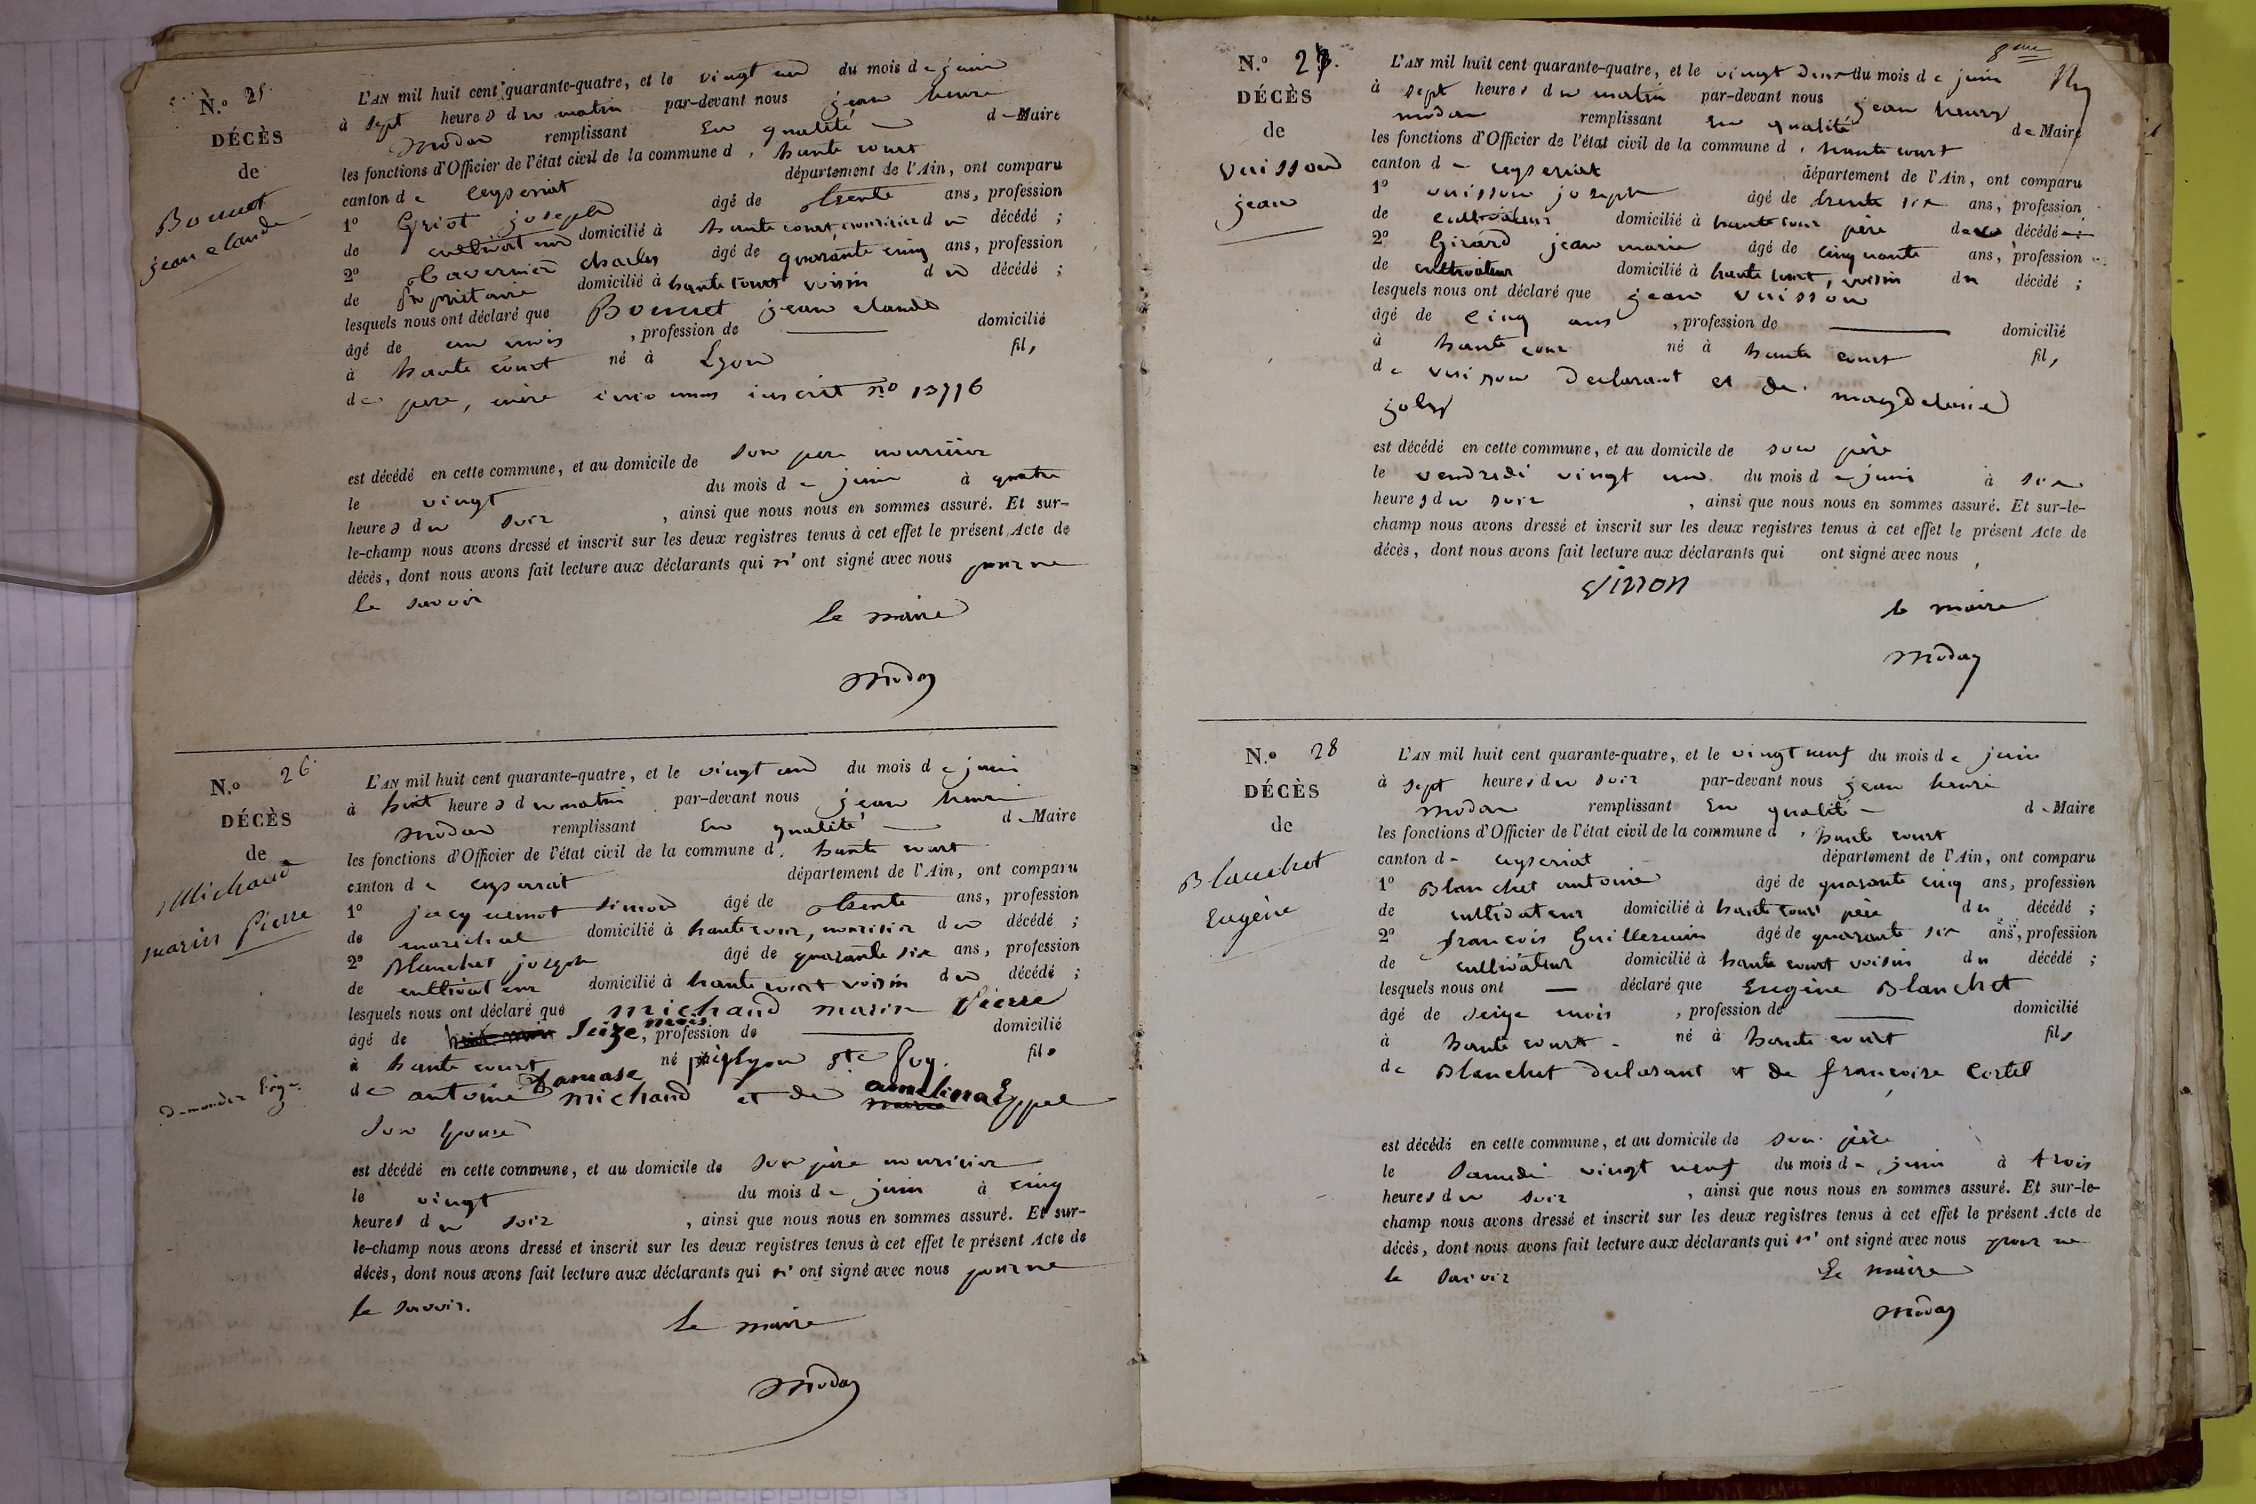 N.º 25.
DÉCÈS
de
Bonnet
jean claude
L'AN mil huit cent quarante-quatre, et le vingt un du mois de juin
à sept heures du matin par-devant nous jean henri
modas remplissant en qualité de Maire
les fonctions d'Officier de l'état civil de la commune d' haute court
canton de ceyseriat département de l'Ain, ont comparu
1º Griot joseph âgé de trente ans, profession
de cultivateur domicilié à haute court, nourricier du décédé ;
2º Tavernier charles âgé de quarante cinq ans, profession
de propriétaire domicilié à haute court voisin du décédé ;
lesquels nous ont déclaré que Bonnet jean claude
âgé de un mois , profession de domicilié
à haute court né à Lyon fils
de père, mère inconnus inscrit nº 13716
est décédé en cette commune, et au domicile de son père nourricier
le vingt du mois de juin à quatre
heures du soir , ainsi que nous nous en sommes assuré. Et sur-
le-champ nous avons dressé et inscrit sur les deux registres tenus à cet effet le présent Acte de
décès, dont nous avons fait lecture aux déclarants qui n'ont signé avec nous pour ne
le savoir
le maire
modas
N.º 26.
DÉCÈS
de
Michaud
marin Pierre
Demander
L'AN mil huit cent quarante-quatre, et le vingt un du mois de juin
à huit heures du matin par-devant nous jean henri
modas remplissant en qualité de Maire
les fonctions d'Officier de l'état civil de la commune d' haute court
canton de ceyseriat département de l'Ain, ont comparu
1º jacquemot simon âgé de trente ans, profession
de maréchal domicilié à haute cour, nourricier du décédé ;
2º Blanchet joseph âgé de quarante six ans, profession
de cultivateur domicilié à haute court voisin du décédé ;
lesquels nous ont déclaré que michaud marin Pierre
âgé de Seize mois, profession de domicilié
à haute court né à lyon ste foy. fils
de antoine Damase michaud et de amelina Eppel
son épouse
est décédé en cette commune, et au domicile de son père nourricier
le vingt du mois de juin à cinq
heures du soir , ainsi que nous nous en sommes assuré. Et sur-
le-champ nous avons dressé et inscrit sur les deux registres tenus à cet effet le présent Acte de
décès, dont nous avons fait lecture aux déclarants qui n'ont signé avec nous pour ne
le savoir.
le maire
modas
8eme
N.º 27.
DÉCÈS
de
vuisson
jean
L'AN mil huit cent quarante-quatre, et le vingt deux du mois de juin
à sept heures du matin par-devant nous jean henry
modas remplissant en qualité de Maire
les fonctions d'Officier de l'état civil de la commune d' haute court
canton de ceyseriat département de l'Ain, ont comparu
1º vuisson joseph âgé de trente six ans, profession
de cultivateur domicilié à haute cour père du décédé ;
2º Girard jean marie âgé de cinquante ans, profession
de cultivateur domicilié à haute court, voisin du décédé ;
lesquels nous ont déclaré que jean vuisson
âgé de cinq ans , profession de domicilié
à haute cour né à haute court fils
de vuisson declarant et de magdelaine
joly
est décédé en cette commune, et au domicile de son père
le vendredi vingt un du mois de juin à six
heures du soir , ainsi que nous nous en sommes assuré. Et sur-le-
champ nous avons dressé et inscrit sur les deux registres tenus à cet effet le présent Acte de
décès, dont nous avons fait lecture aux déclarants qui ont signé avec nous
le maire
modas
N.º 28
DÉCÈS
de
Blanchet
Eugène
L'AN mil huit cent quarante-quatre, et le vingt neuf du mois de juin
à sept heures du soir par-devant nous jean henri
modas remplissant en qualité de Maire
les fonctions d'Officier de l'état civil de la commune d' haute court
canton de ceyseriat département de l'Ain, ont comparu
1º Blanchet antoine âgé de quarante cinq ans, profession
de cultivateur domicilié à haute court père du décédé ;
2º françois Guillermin âgé de quarante six ans, profession
de cultivateur domicilié à haute court voisin du décédé ;
lesquels nous ont déclaré que Eugène Blanchet
âgé de seize mois , profession de domicilié
à haute court né à haute court fils
de Blanchet declarant et de françoise Cortel
est décédé en cette commune, et au domicile de son père
le samedi vingt neuf du mois de juin à trois
heures du soir , ainsi que nous nous en sommes assuré. Et sur-le-
champ nous avons dressé et inscrit sur les deux registres tenus à cet effet le présent Acte de
décès, dont nous avons fait lecture aux déclarants qui n'ont signé avec nous pour ne
le savoir
Le maire
modas